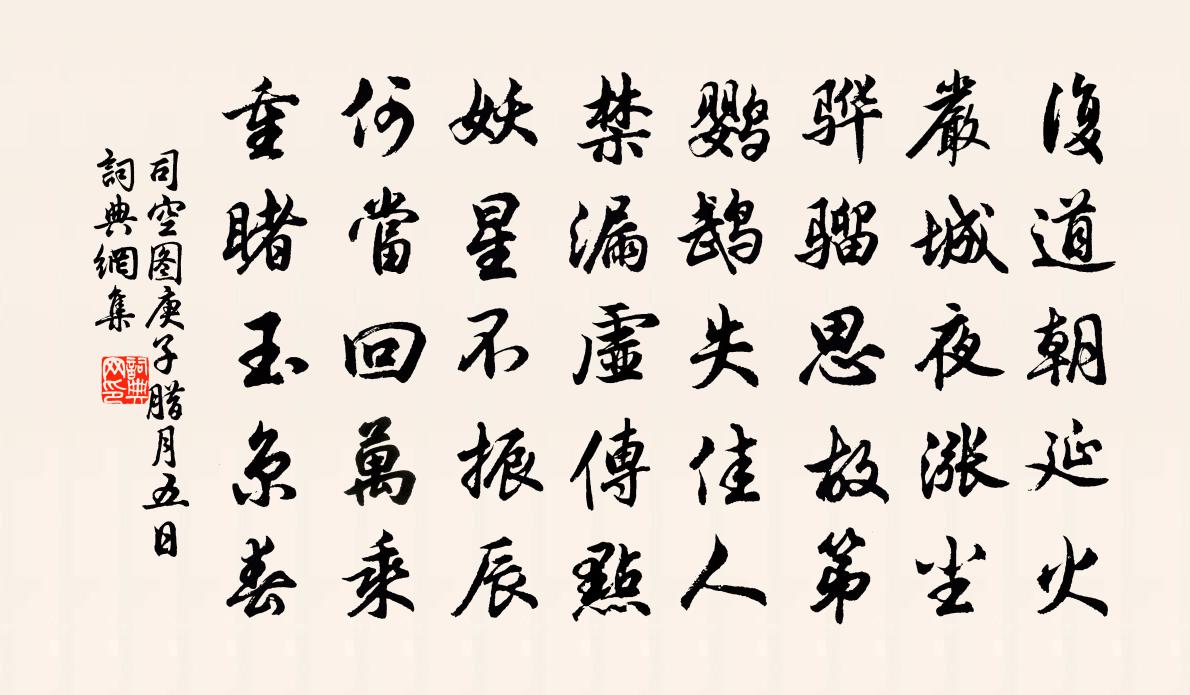 復道朝延火
嚴城夜漲尘
骅骝思故第
鹦鹉失佳人
禁漏虛傳點
妖星不振辰
何當回萬乘
重睹玉京春
司空图庚子腊月五日
詞典網集
詞典
网印